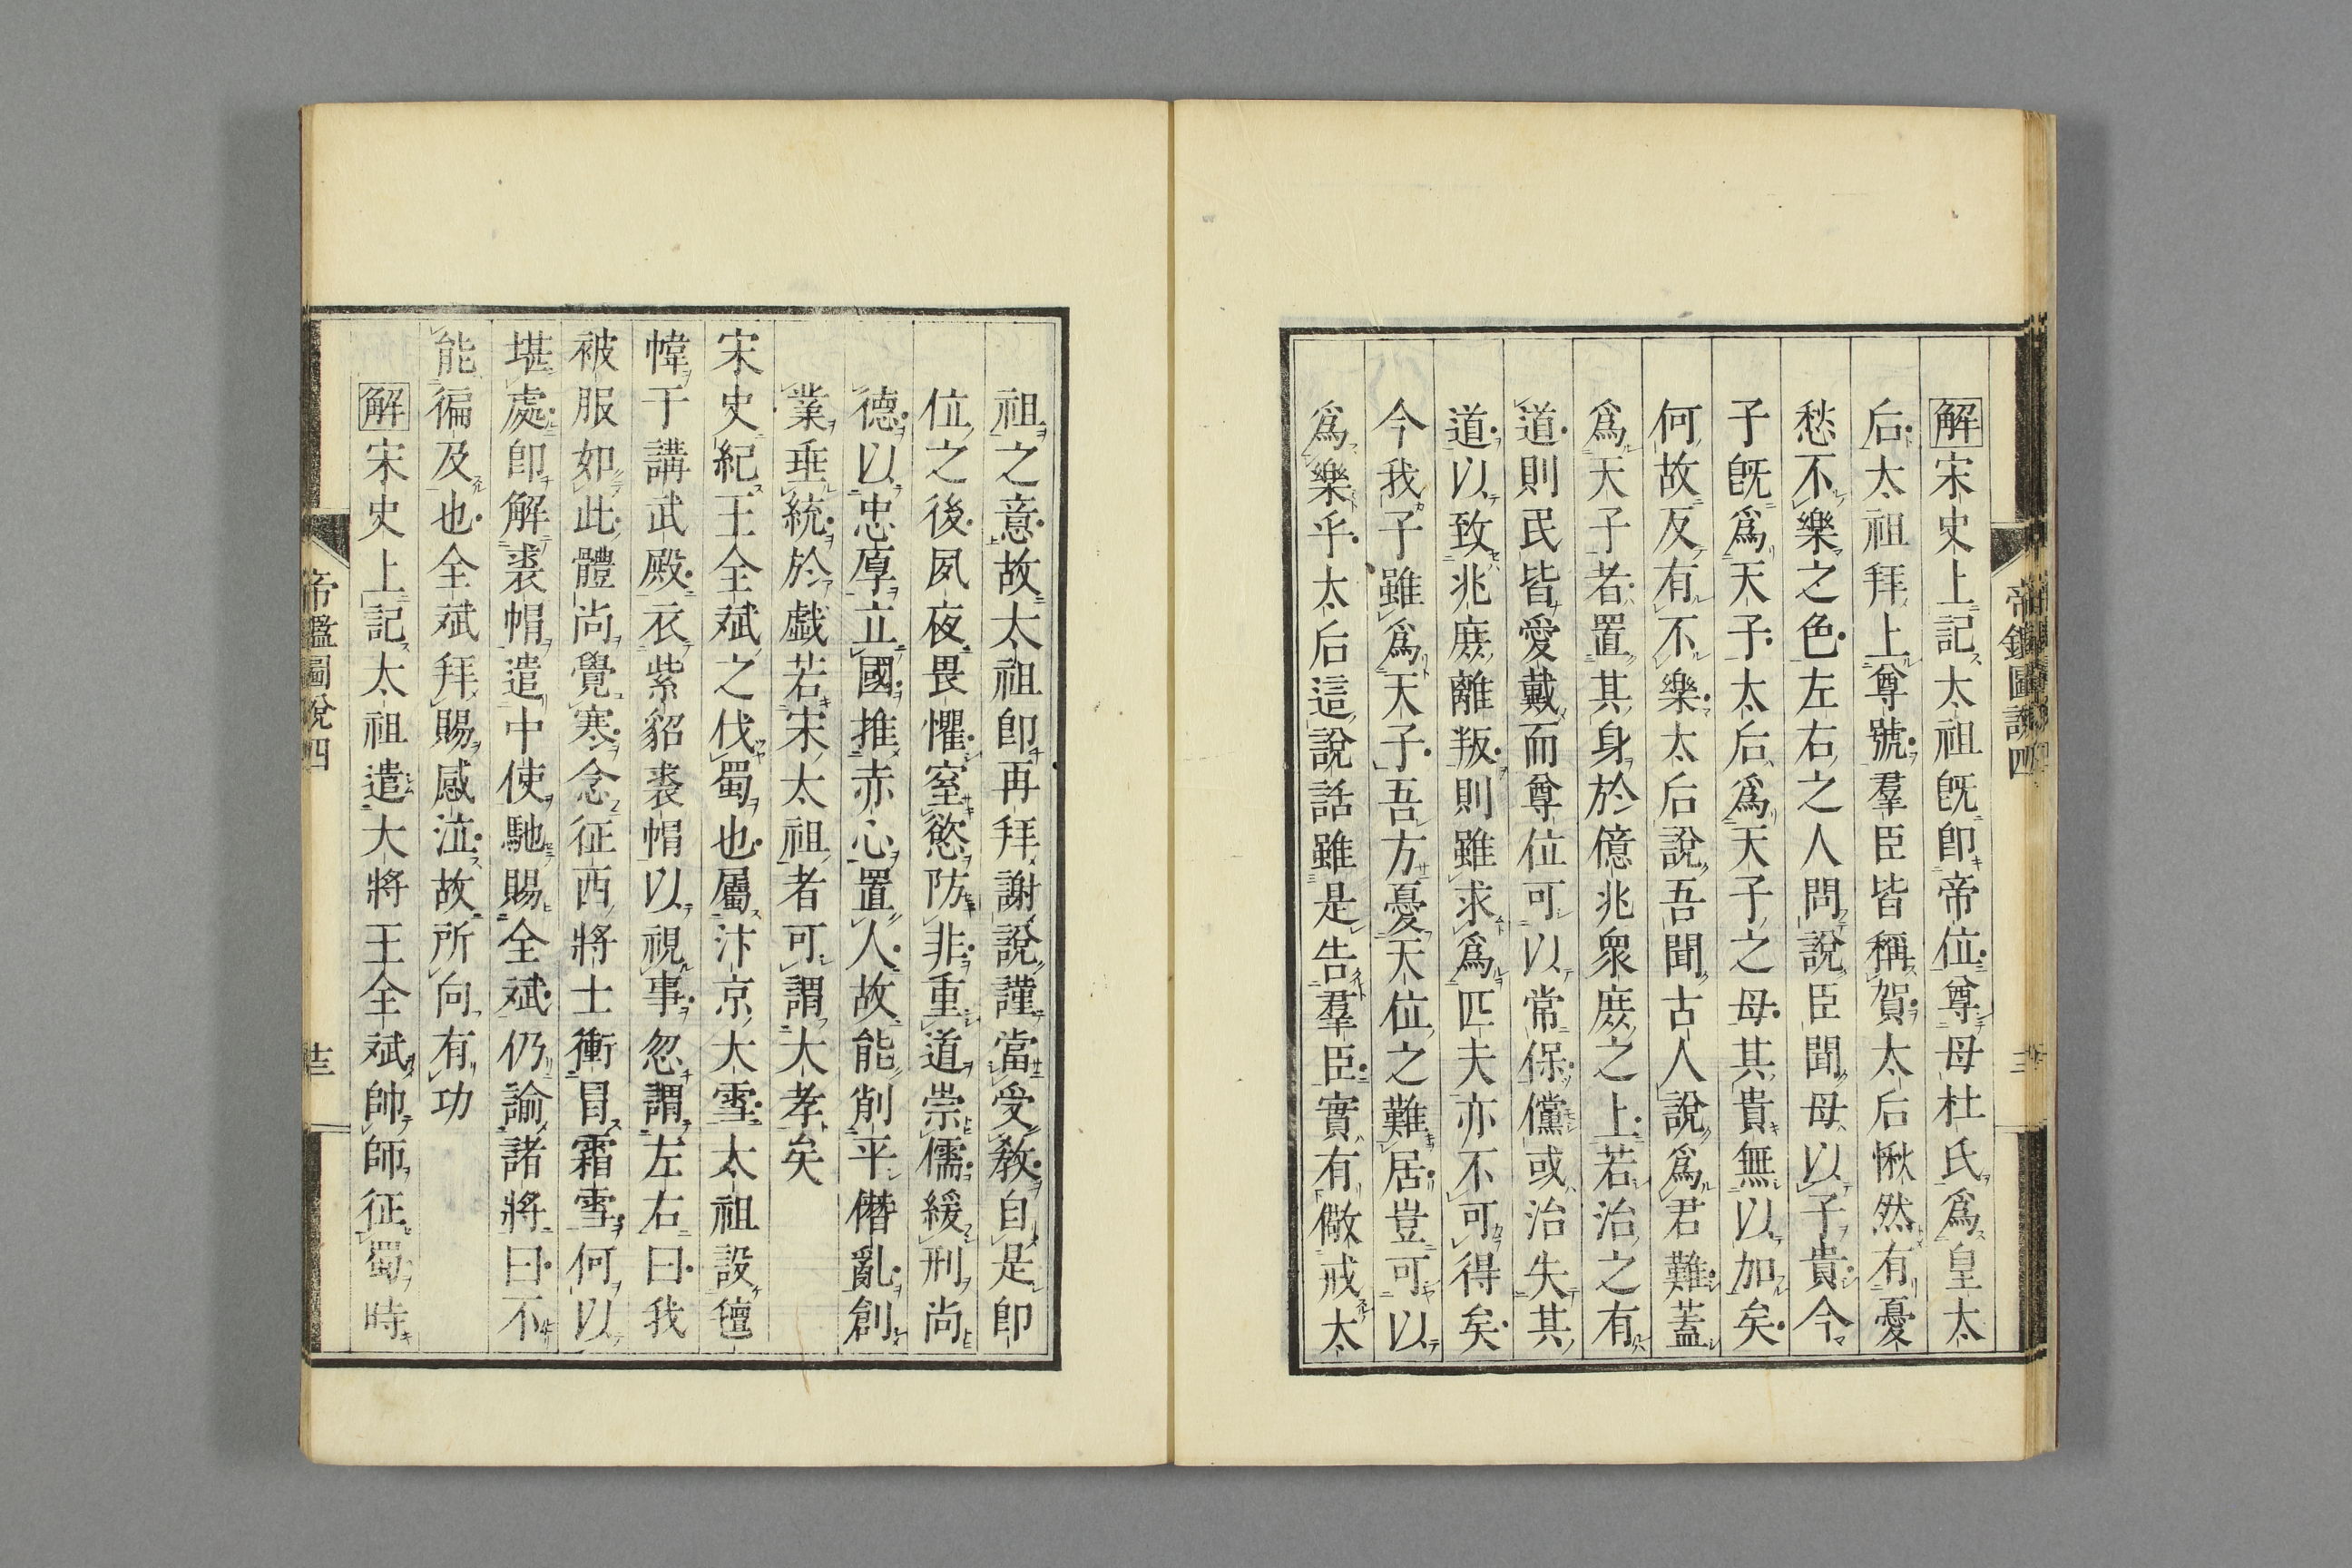 解宋史上記太祖既即帝位尊母杜氏爲皇太
后太祖拜上尊號羣臣皆稱賀太后愀然有憂
愁不樂之色左右之人問說臣聞母以子貴今
子既爲天子太后爲天子之母其貴無以加矣
何故反有不樂太后說吾聞古人說爲君難蓋
爲天子者置其身於億兆衆庶之上若治之有
道則民皆愛戴而尊位可以常保儻或治失其
道以致兆庶離叛則雖求爲匹夫亦不可得矣
今我子雖爲天子吾方憂天位之難居豈可以
爲樂乎太后這說話雖是告羣臣實有儆戒太
祖之意故太祖即再拜謝說謹當受教自是即
位之後夙夜畏懼窒慾防非重道崇儒緩刑尚
德以忠厚立國推赤心置人故能削平僭亂創
業垂統於戲若宋太祖者可謂大孝矣
宋史紀王全斌之伐蜀也屬汴京大雪太祖設氊
幃于講武殿衣紫貂裘帽以視事忽謂左右曰我
被服如此體尚覺寒念征西將士衝冒霜雪何以
堪處即解裘帽遣中使馳賜全斌仍諭諸將曰不
能徧及也全斌拜賜感泣故所向有功
解宋史上記太祖遣大將王全斌帥師征蜀時
帝鑑圖說四